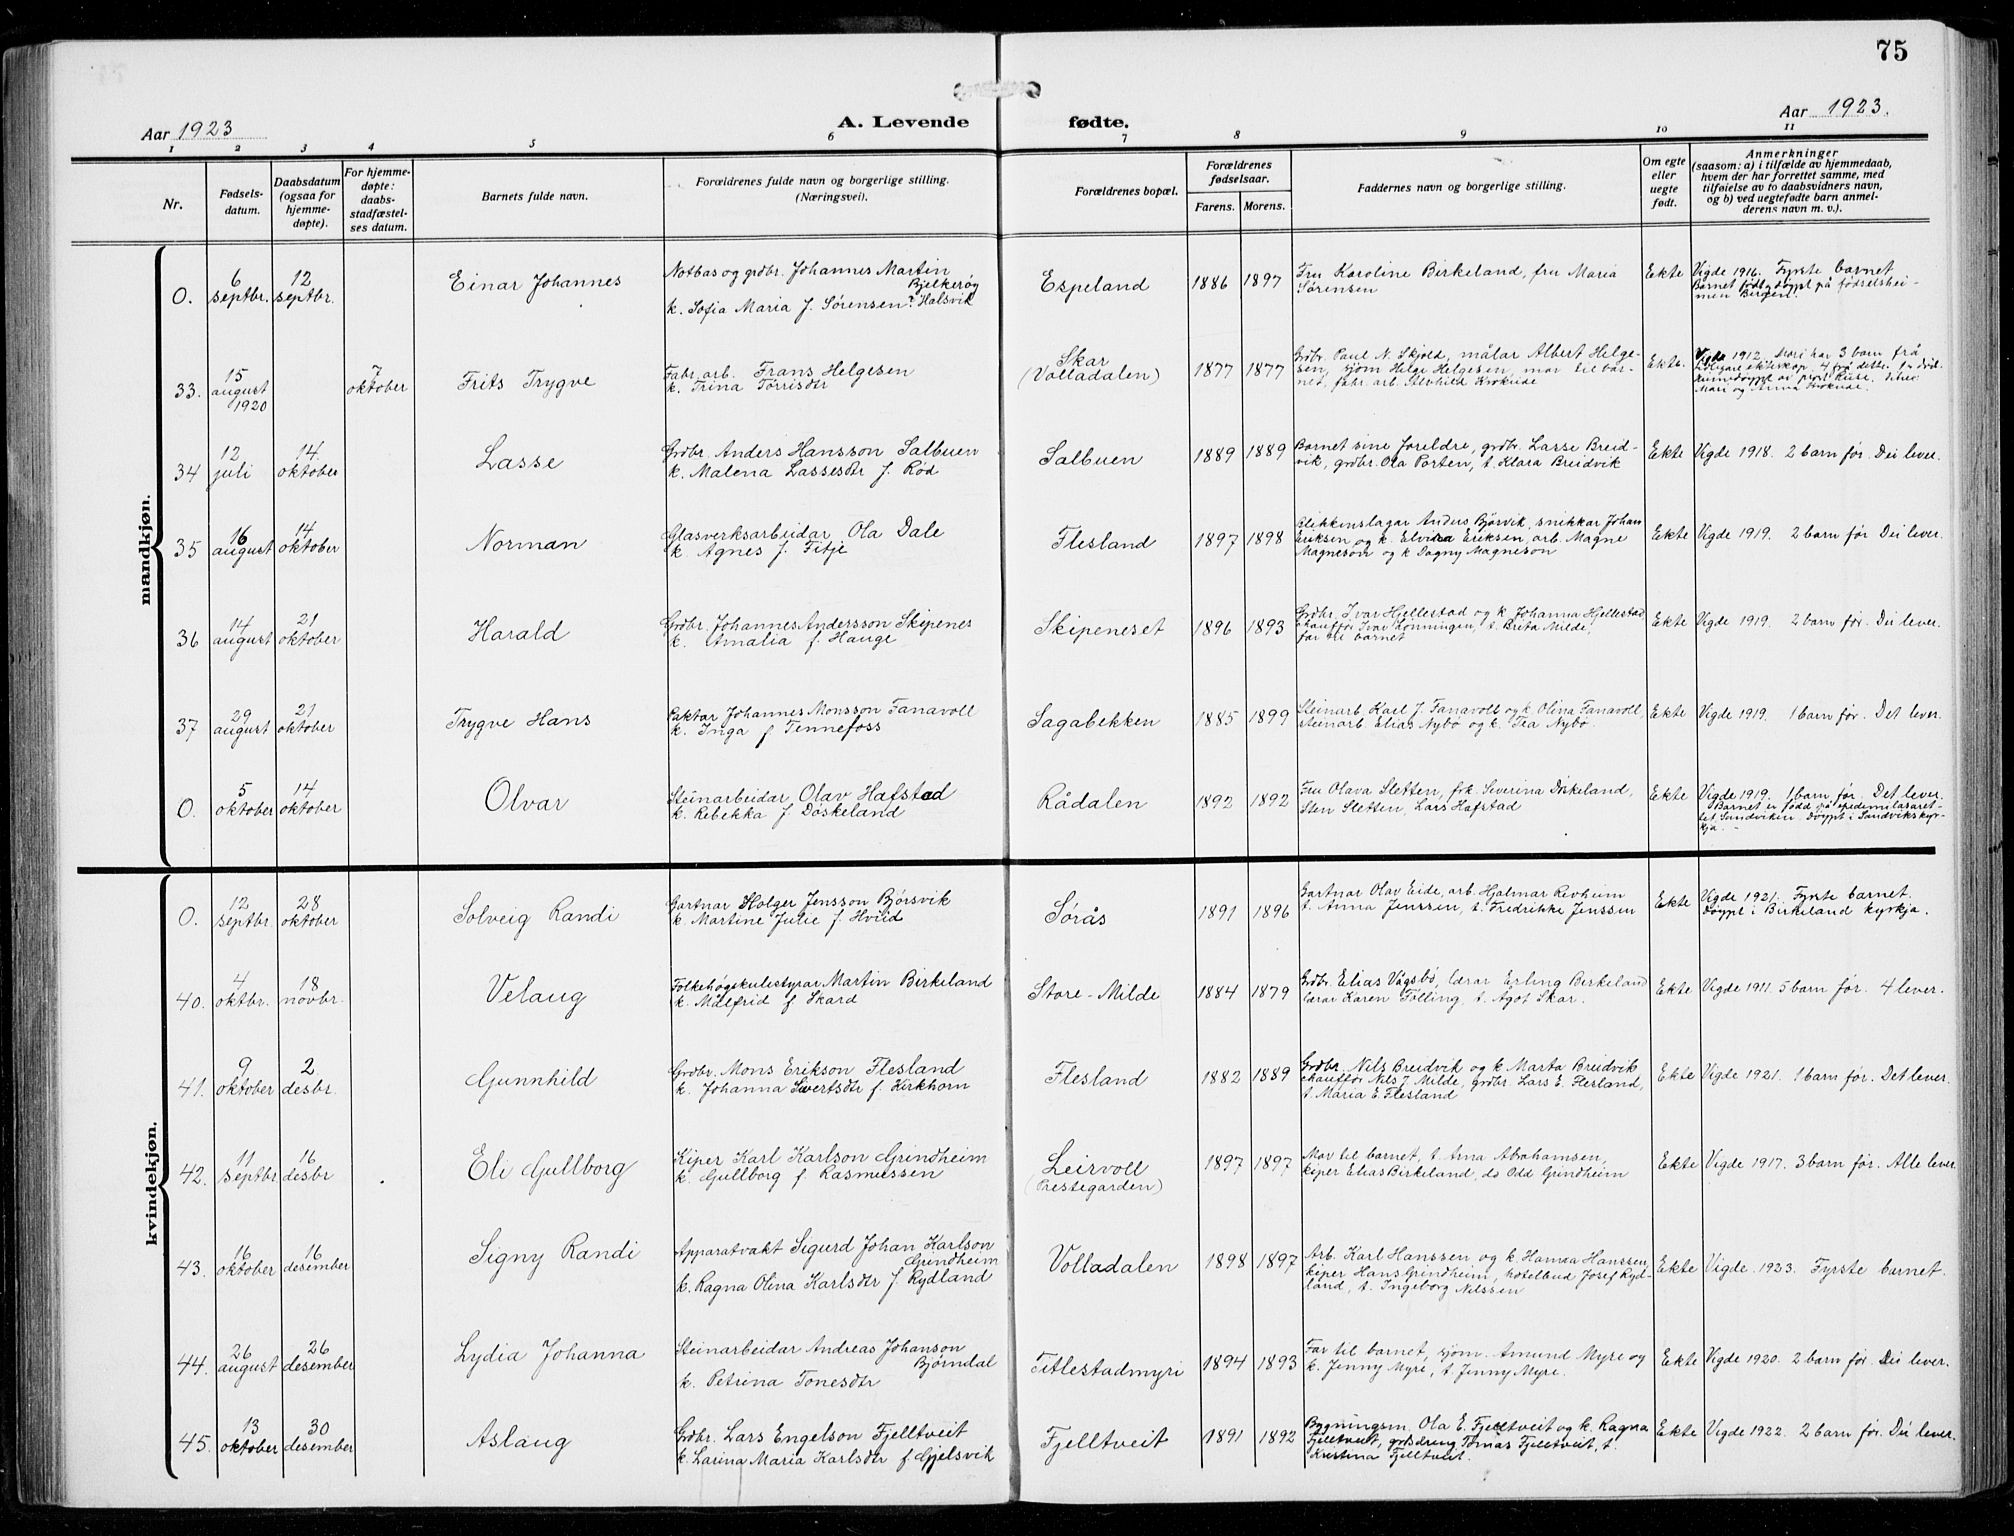 75
Aar 1923
A. Levende fødte.
Aar 1923.
1 2 3 4 5 6 7 8 9 10 11
Nr.
Fødsels-
datum.
Daabsdatum
(ogsaa for
hjemme-
døpte).
For hjemme-
døpte:
daabs-
stadfæstel-
ses datum.
Barnets fulde navn.
Forældrenes fulde navn og borgerlige stilling.
(Næringsvei).
Forældrenes bopæl.
Forældrenes
fødselsaar.
Farens. Morens.
Faddernes navn og borgerlige stilling.
Om egte
eller
uegte
født.
Anmerkninger
(saasom: a) i tilfælde av hjemmedaab,
hvem der har forrettet samme, med
tilføielse av to daabsvidners navn,
og b) ved uegtefødte barn anmel-
derens navn m. v.).
mandkjøn.
0.
6
septbr.
12
septbr.
Einar Johannes
Notbas og grdbr. Johannes Martin
Bjelkerøy
k. Sofia Maria f. Sørensen Halsvik
Espeland
1886
1897
Fru Karoline Birkeland, fru Maria
Sørensen
Ekte
Vigde 1916. Fyrste barnet
Barnet født og døypt på fødselshei-
men Bergen.
33.
15
august
1920
7
oktober
Frits Trygve
Fabr. arb. Frans Helgesen
k. Trina Torrisdtr
Skar
(Volladalen)
1877
1877
Grdbr. Paul N. Skjold, målar Albert Helge-
sen, sjøm Helge Helgesen, mor til bar-
net, fabr. arb.
Ekte.
Vigde 1912. Mori har 3 barn frå
34
12
juli
14
oktober
Lasse
Grdbr. Anders Hansson Salbuen
k. Malena Lassesdtr f. Rød
Salbuen
1889
1889
Barnet sine foreldre, grdbr. Lasse Breid-
vik, grdbr. Ola Porten, t. Klara Breidvik
Ekte
Vigde 1918. 2 barn før. Dei lever.
35
16
august
14
oktober
Norman
Glasverksarbeidar Ola Dale
k. Agnes f. Fitje
Flesland
1897
1898
Blikkenslagar Anders Bjørvik, snikkar Johan
Eriksen og k. Elvira Eriksen, arb. Magne
Magneson og k Dagny Magneson
Ekte
Vigde 1919. 2 barn før Dei lever.
36
14
august
21
oktober
Harald
Grdbr. Johannes Andersson Skipenes
k. Amalia f. Hauge
Skipeneset
1896
1893
Grdbr. Ivar Hjellestad og k. Johanna Hjellestad
chauffør Ivar Rønningen, t. Brita Milde,
far til barnet
Ekte
Vigde 1919. 2 barn før. Dei lever.
37
29
august
21
oktober
Trygve Hans
Paktar Johannes Monsson Fanavoll
k. Inga f Tennefoss
Sagabekken
1885
1899
Steinarb. Karl J. Fanavoll og k Olina Fanavoll,
steinarb. Elias Nybø og k. Tea Nybø.
Ekte
Vigde 1919. 1 barn før. Det lever.
0.
5
oktober
14
oktober
Olvar
Steinarbeidar Olav Hafstad
k. Rebekka f. Døskeland
Rådalen
1892
1892
Fru Olava Sletten, frk. Severina Døskeland,
Sten Sletten, Lars Hafstad
Ekte
Vigde 1919. 1 barn før. Det lever.
Barnet er fødd på epidemilasaret-
tet Sandviken. Døypt i Sandvikskyr-
kja.
kvindekjøn.
0.
12
septbr.
28
oktober
Solveig Randi
Gartnar Holger Jensson Bjørsvik
k. Martine Julie f. Hvild
Sørås
1891
1896
Gartnar Olav Eide, arb. Hjalmar Revheim
t. Anna Jenssen, t. Fredrikke Jenssen
Ekte
Vigde 1921. Fyrste barnet.
Døypt i Birkeland kyrkja.
40.
4
oktbr.
18
novbr.
Velaug
Folkehøgskulestyrar Martin Birkeland
k. Målfrid f Skard
Store-Milde
1884
1879
Grdbr. Elias Vågsbø, lærar Erling Birkeland
lærar Karen Tolling, t. Agot Skar.
Ekte
Vigde 1911. 5 barn før. 4 lever.
41.
9
oktober
2
desbr.
Gunnhild
Grdbr. Mons Erikson Flesland
k. Johanna Sivertsdtr f. Kirkhorn
Flesland
1882
1889
Grdbr. Nils Breidvik og k Marta Breidvik
chauffør Nils J. Milde, grdbr. Lars E. Flesland,
t. Maria E. Flesland
Ekte
Vigde 1921. 1 barn før. Det lever.
42.
11
septbr
16
desbr
Eli Gullborg
Kiper Karl Karlson Grindheim
k. Gullborg f. Rasmussen
Leirvoll
(Prestegarden)
1897
1897
Mor til barnet, t. Arna Abrahamsen,
kiper Elias Birkeland, do Odd Grindheim
Ekte
Vigde 1917. 3 barn før. Alle lever.
43.
16
oktober
16
desember
Signy Randi
Apparatvakt Sigurd Johan Karlson
Grindheim
k. Ragna Olina Karlsdtr f. Rydland
Volladalen
1898
1897
Arb. Karl Hanssen og k. Hanna Hanssen,
kiper Hans Grindheim, hotelbud Josef Ryd-
land, t. Ingeborg Nilssen
Ekte
Vigde 1923. Fyrste barnet.
44.
26
august
26
desember
Lydia Johanna
Steinarbeidar Andreas Johanson
Bjørndal
k. Petrina Tonesdtr
Titlestadmyri
1894
1893
Far til barnet, sjøm. Amund Myre og
k. Jenny Myre, t. Jenny Myre.
Ekte
Vigde 1920. 2 barn før. Dei lever.
45.
13
oktober
30
desember
Aslaug
Grdbr. Lars Engelson Fjelltveit
k. Larina Maria Karlsdtr f Gjelsvik
Fjelltveit
1891
1892
Bygningsm. Ola E. Fjelltveit og k. Ragna
Fjelltveit, gardsdreng Tomas Fjelltveit, t.
Kristina Fjelltveit.
Ekte
Vigde 1922. 2 barn før. Dei lever.